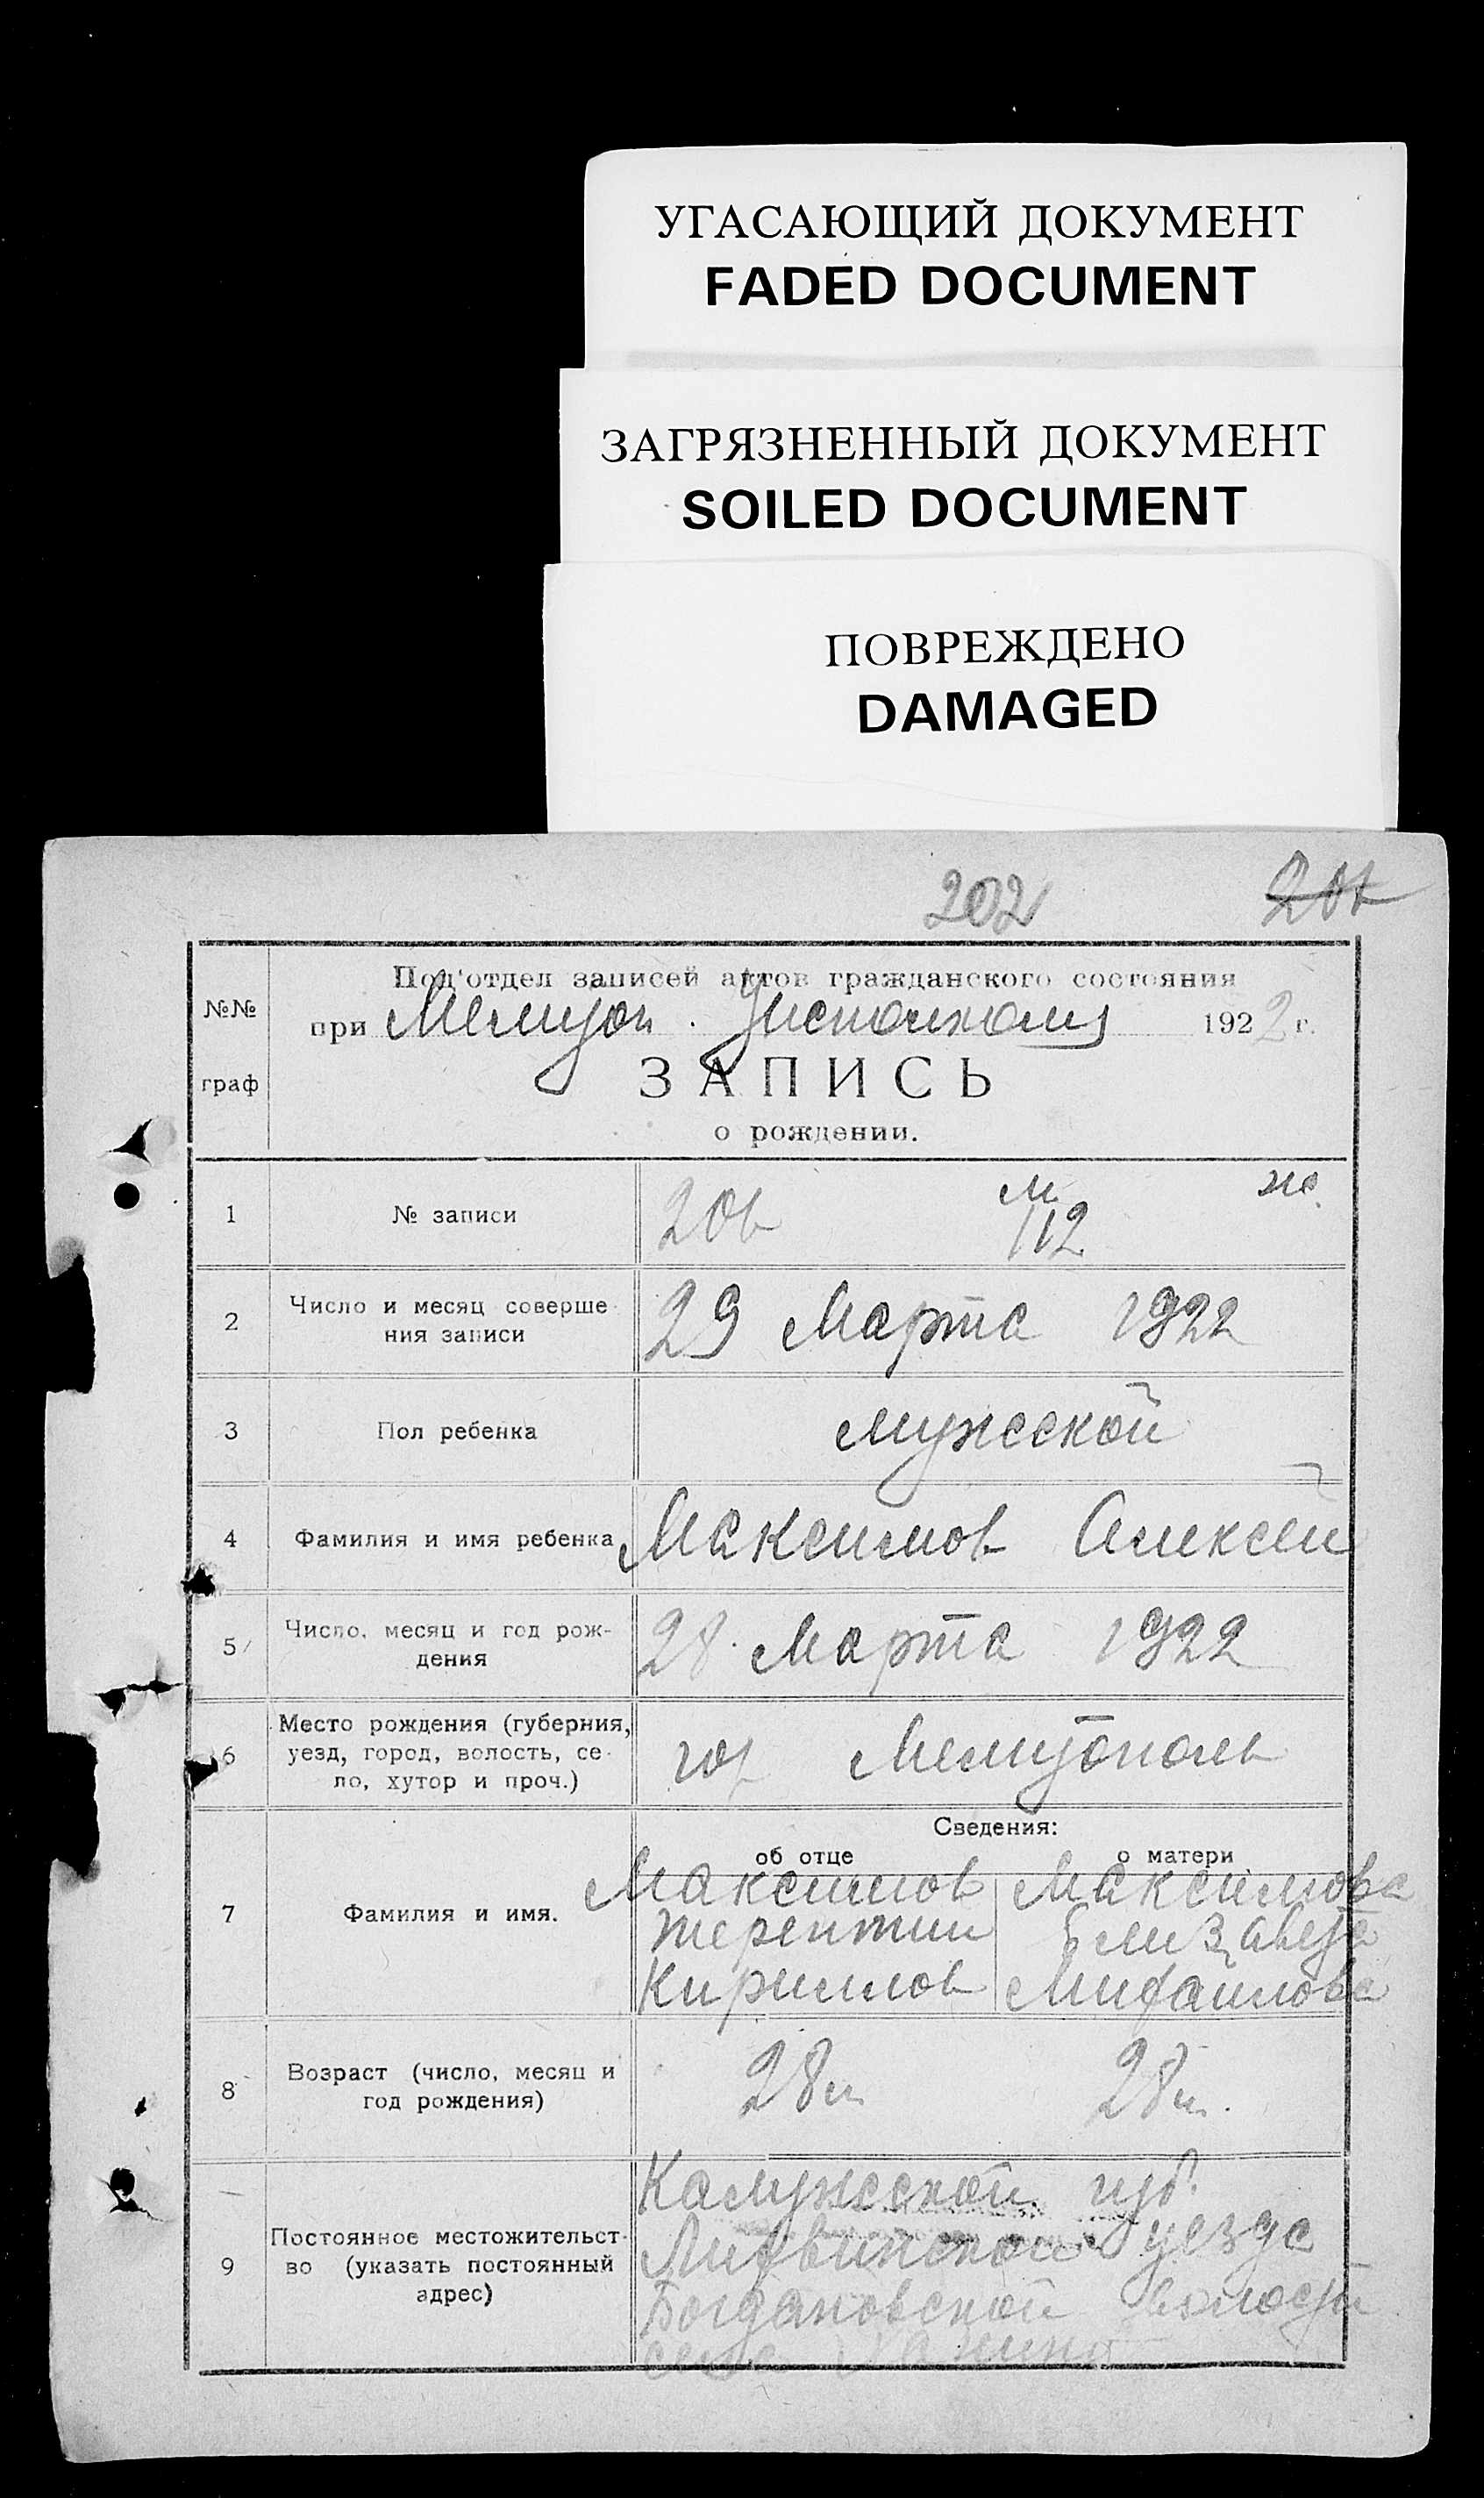 УГАСАЮЩИЙ ДОКУМЕНТ
FADED DOCUMENT
ЗАГРЯЗНЕННЫЙ ДОКУМЕНТ
SOILED DOCUMENT
ПОВРЕЖДЕНО
DAMAGED
202
Под'отдел записей актов гражданского состояния
№№
граф
при Мелитоп. Уисполкоме 1922 г.
ЗАПИСЬ
о рождении.
м ж.
1 № записи 206 112
2 Число и месяц соверше-
ния записи
29 Марта 1922
3 Пол ребенка мужской
4 Фамилия и имя ребенка Максимов Алексей
5 Число, месяц и год рож-
дения
28 Марта 1922
6 Место рождения (губерния,
уезд, город, волость, се-
ло, хутор и проч.)
гор Мелитополь
Сведения:
об отце о матери
7 Фамилия и имя.
Максимов Максимова
Терентий Елизавета
Кириллов Михайлова
8 Возраст (число, месяц и
год рождения)
28 л 28 л.
9 Постоянное местожительст-
во (указать постоянный
адрес)
Калужской губ.
Лихвинского уезда
Богдановской волости
села Ханино